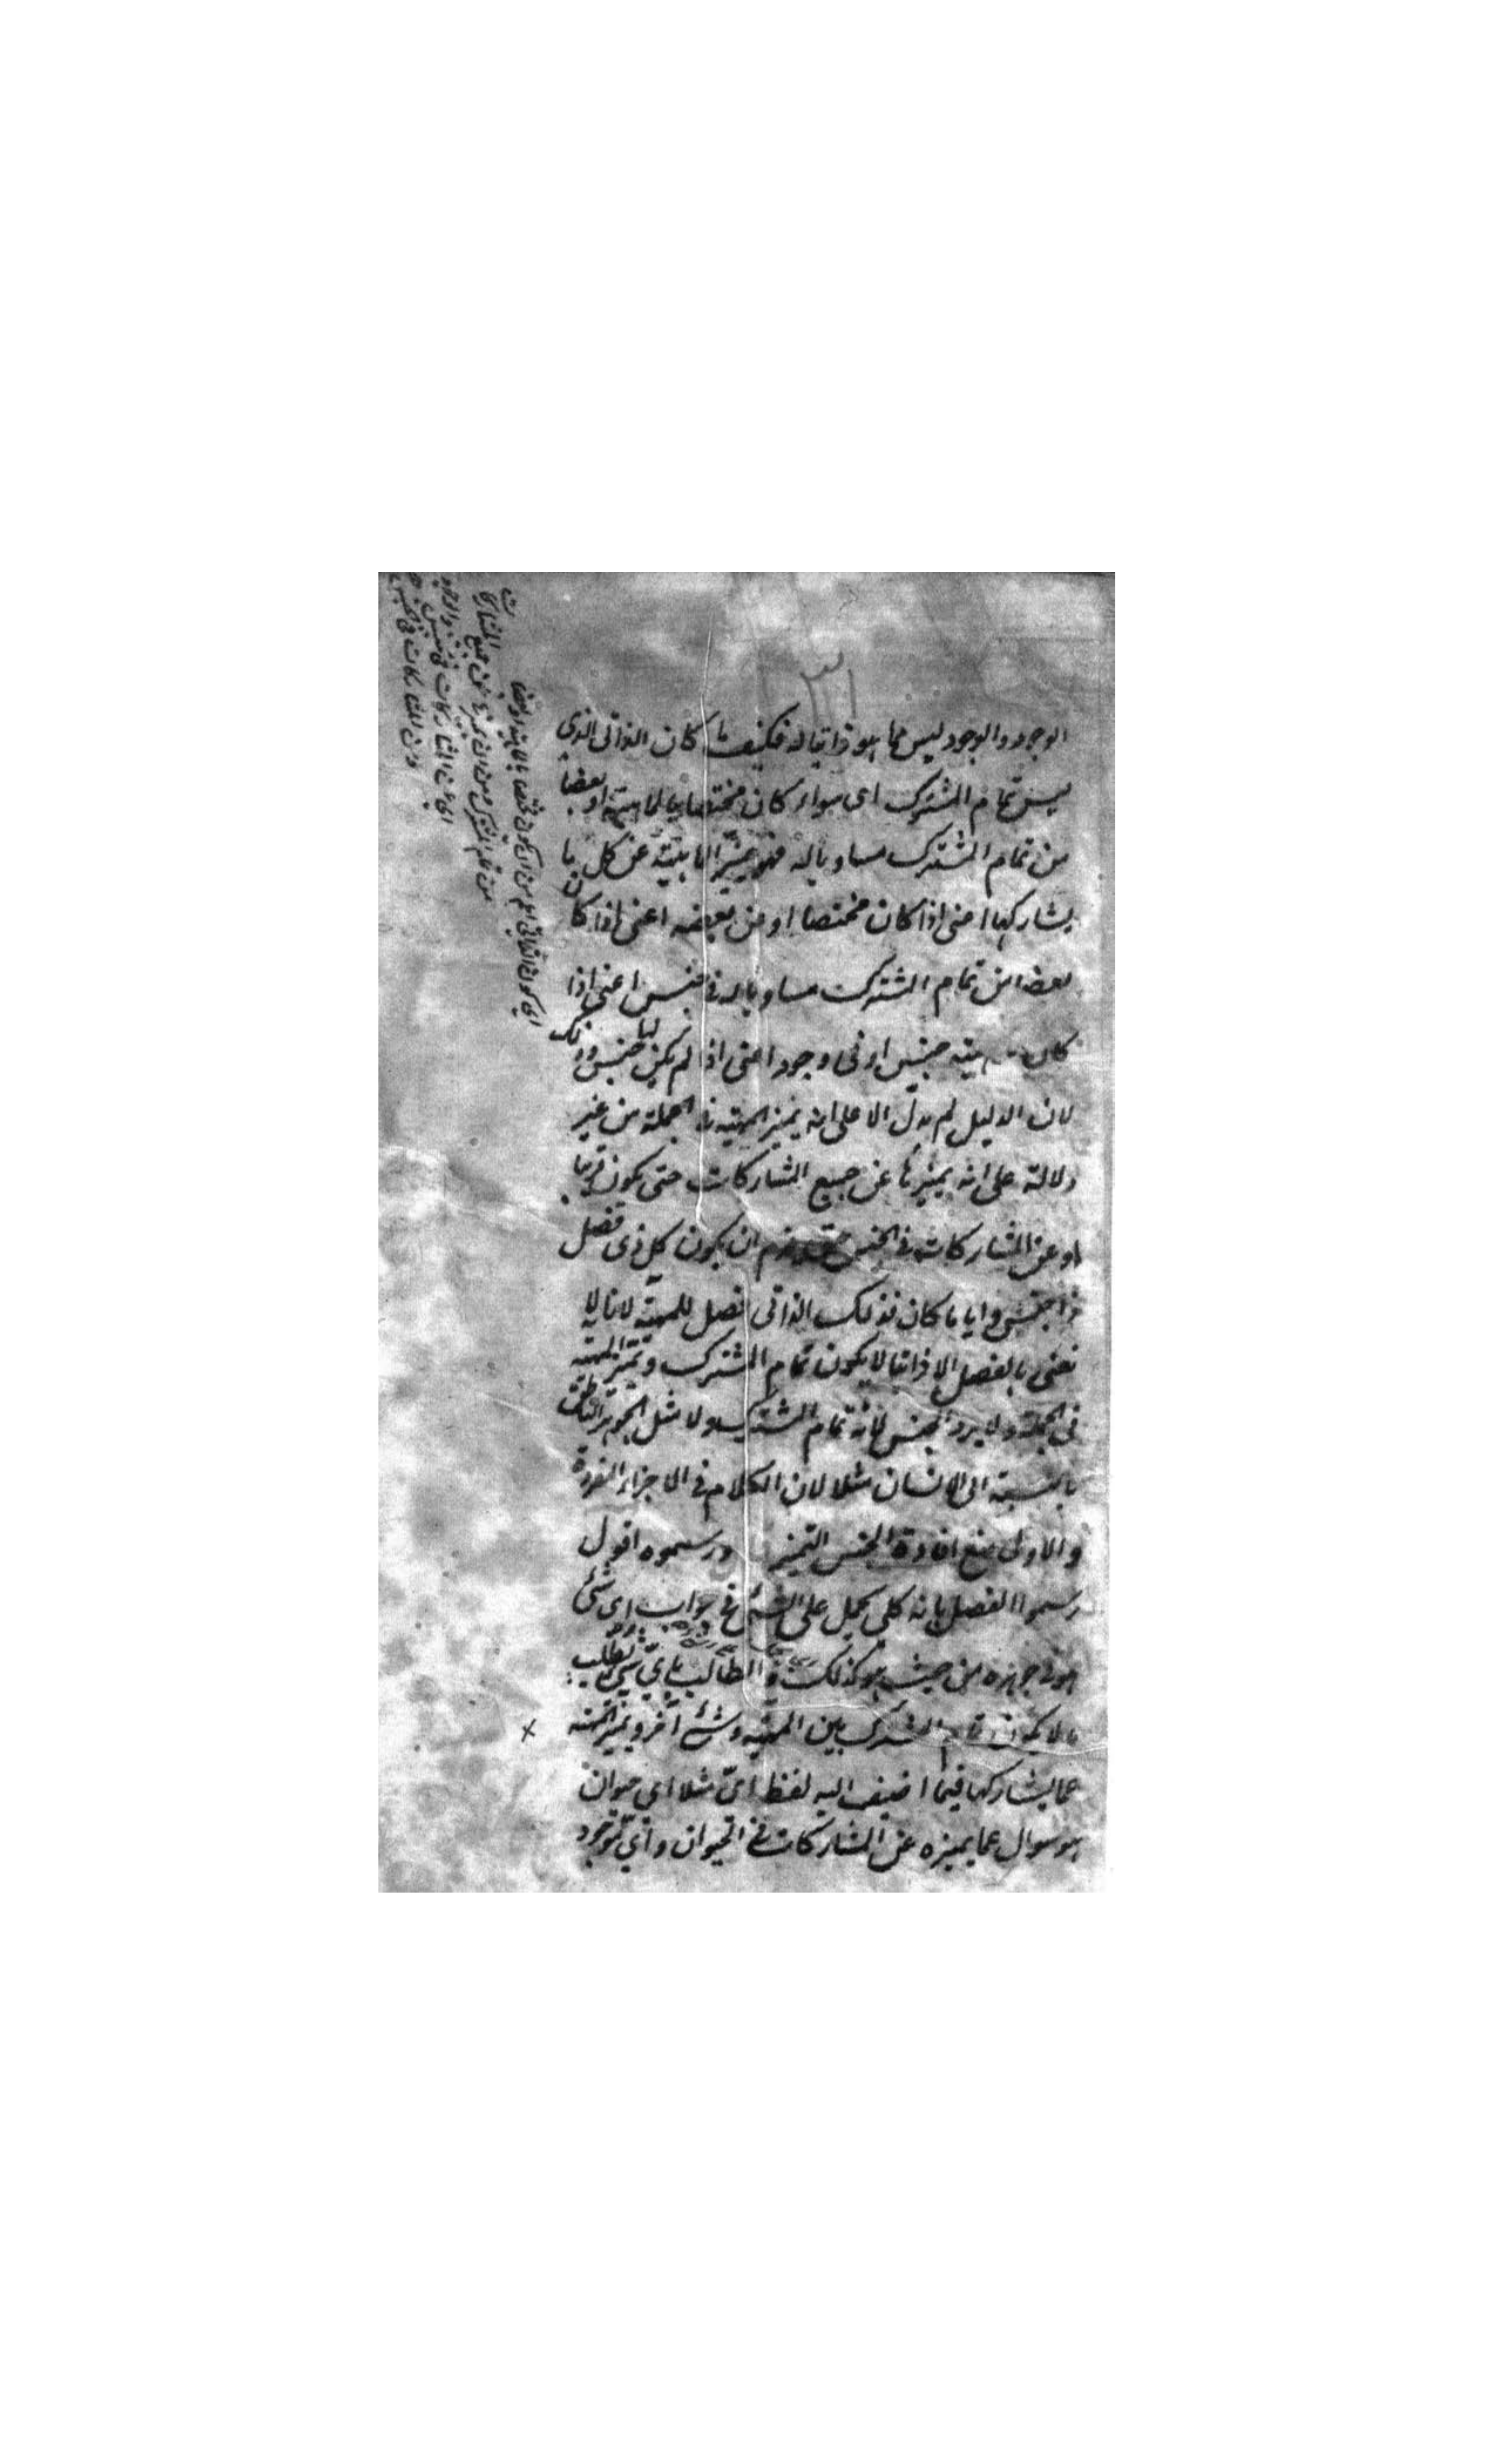 ٣١
الوجود والوجود ليس مما هو ذاتيا له فكيف ما كان الذاتي الذي
ليس تمام المشترك اى سواء كان مختصا بالماهية او بعضا
من تمام المشترك مساويا له فهو يميز الماهية عن كل ما
يشاركها اعنى اذا كان مختصا او من بعضه اعنى اذا كان
بعضا من تمام المشترك مساويا له في جنس اعنى اذا
كان جنس او فى وجود اعنى اذا لم يكن لها جنس وذلك
لان الدليل لم يدل الا على انه يميز المهية فى الجملة من غير
دلالة على انه يميزها عن جميع المشاركات حتى يكون قريبا
او عن المشاركات فى الجنس ان يكون كل ذى فصل
ذا جنس وايا ما كان فذلك الذاتى فصل للمهية لانا لا
نعنى بالفصل الا ذاتيا لا يكون تمام المشترك ويميز المهية
فى الجملة ولا يرد الجنس لانه تمام المشترك ولا مثل الجوهر الناطق
بالنسبة الى الانسان مثلا لان الكلام فى الاجزاء المفردة
والاولى منع افادة الجنس التميز ورسموه اقول
رسموا الفصل بانه كلى يحمل على الشئ فى جواب اى شئ
هو فى جوهره من حيث هو كذلك والطالب باى شئ يطلب
ما لا يكون تمام المشترك بين المهية وشئ آخر ويميز المهية
عما يشاركها فيما اضيف اليه لفظ اى مثلا اى حيوان
هو سوال عما يميزه عن المشاركات فى الحيوان واى موجود
اى كون الذاتى اعم من ان يكون مختصا بالماهية او بعضا
من تمام المشترك ومن ان يميز عن جميع المشاركات